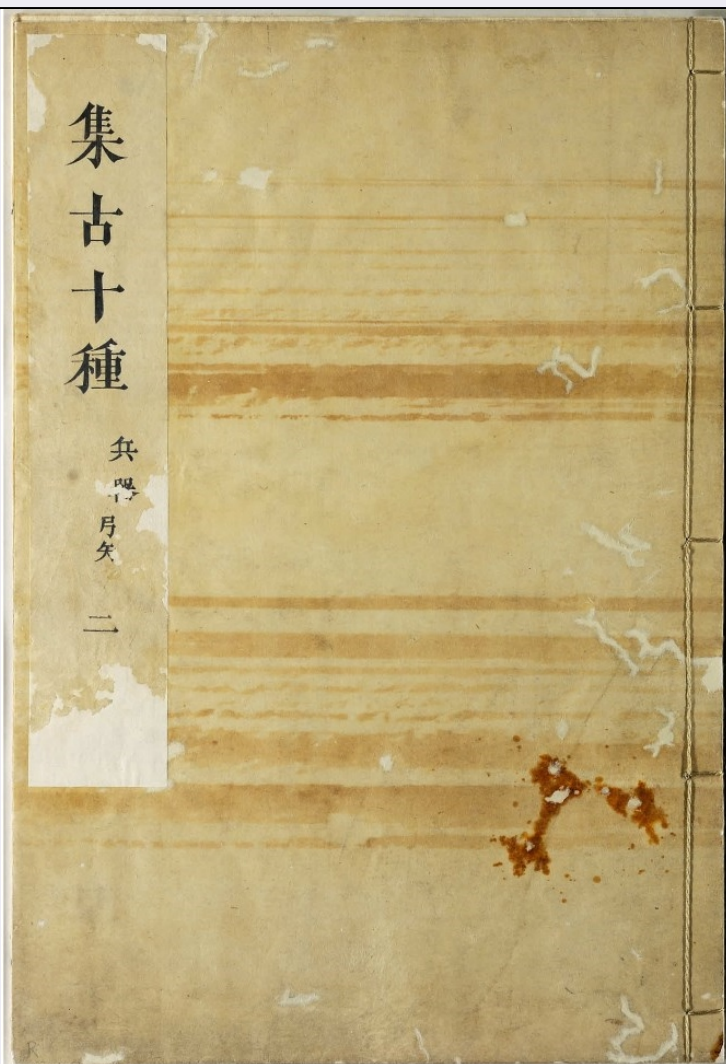 集古十種
兵器
弓矢
二
R